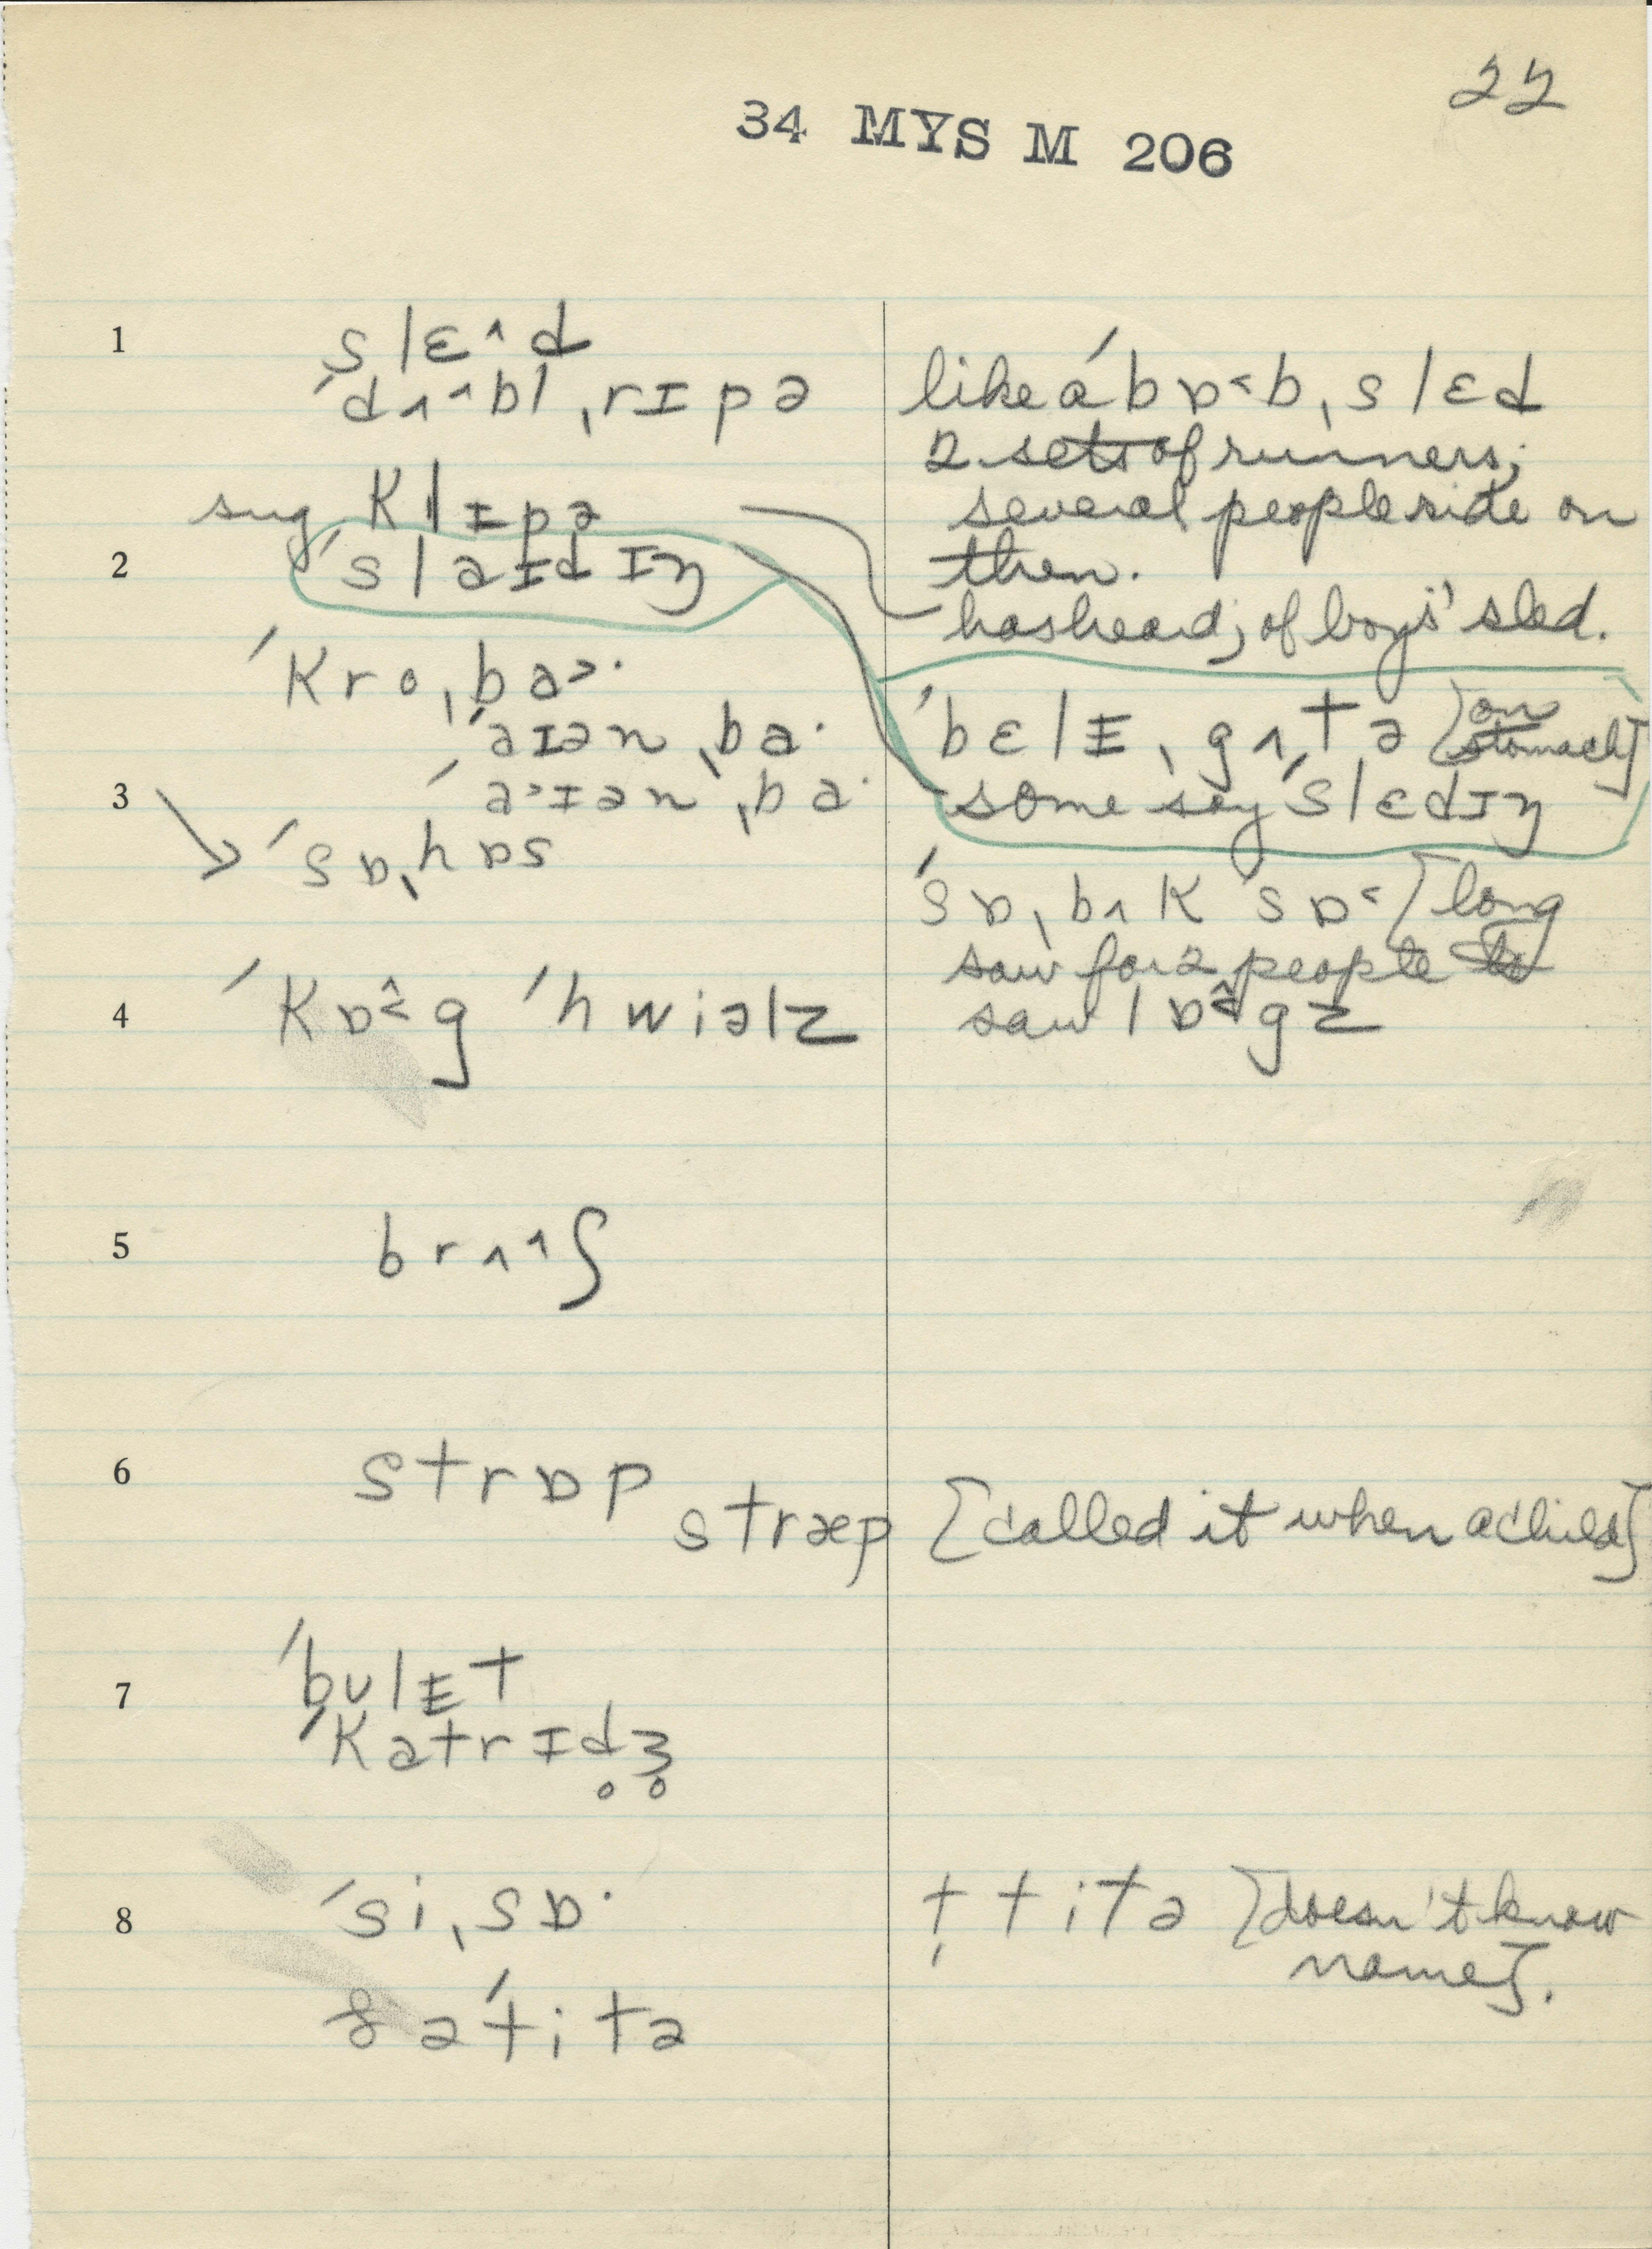 22
34 MYS M 206
1 slɛ^d
ˈdʌ^bl ˌrɪpə
like a ˈbɒ˂bˌslɛd
2 sets of runners;
several people ride on
then.
sug klɪpə
has heard; of boys' sled.
2 ˈslaɪdɪŋ
ˈkroˌba˃·
ˈaɪənˌba·
ˈbɛlɪˌgʌtə [on stomach]
3 ˈa˃ɪənˌba·
some say ˈslɛdɪŋ
ˈsɒˌhɒs
ˈsɒˌbʌk sɒ˂ [long
saw for 2 people to
4 ˈkɒ˂^g ˈhwiəlz
saw lɒ˂^gz
5 brʌ^ʃ
6 strɒp
stræp [called it when a child]
7 ˈbulɪt
ˈkatrɪd̥ʒ̊
8 ˈsiˌsɒ·
t̩titə [doesn't know
name].
ˈtitə